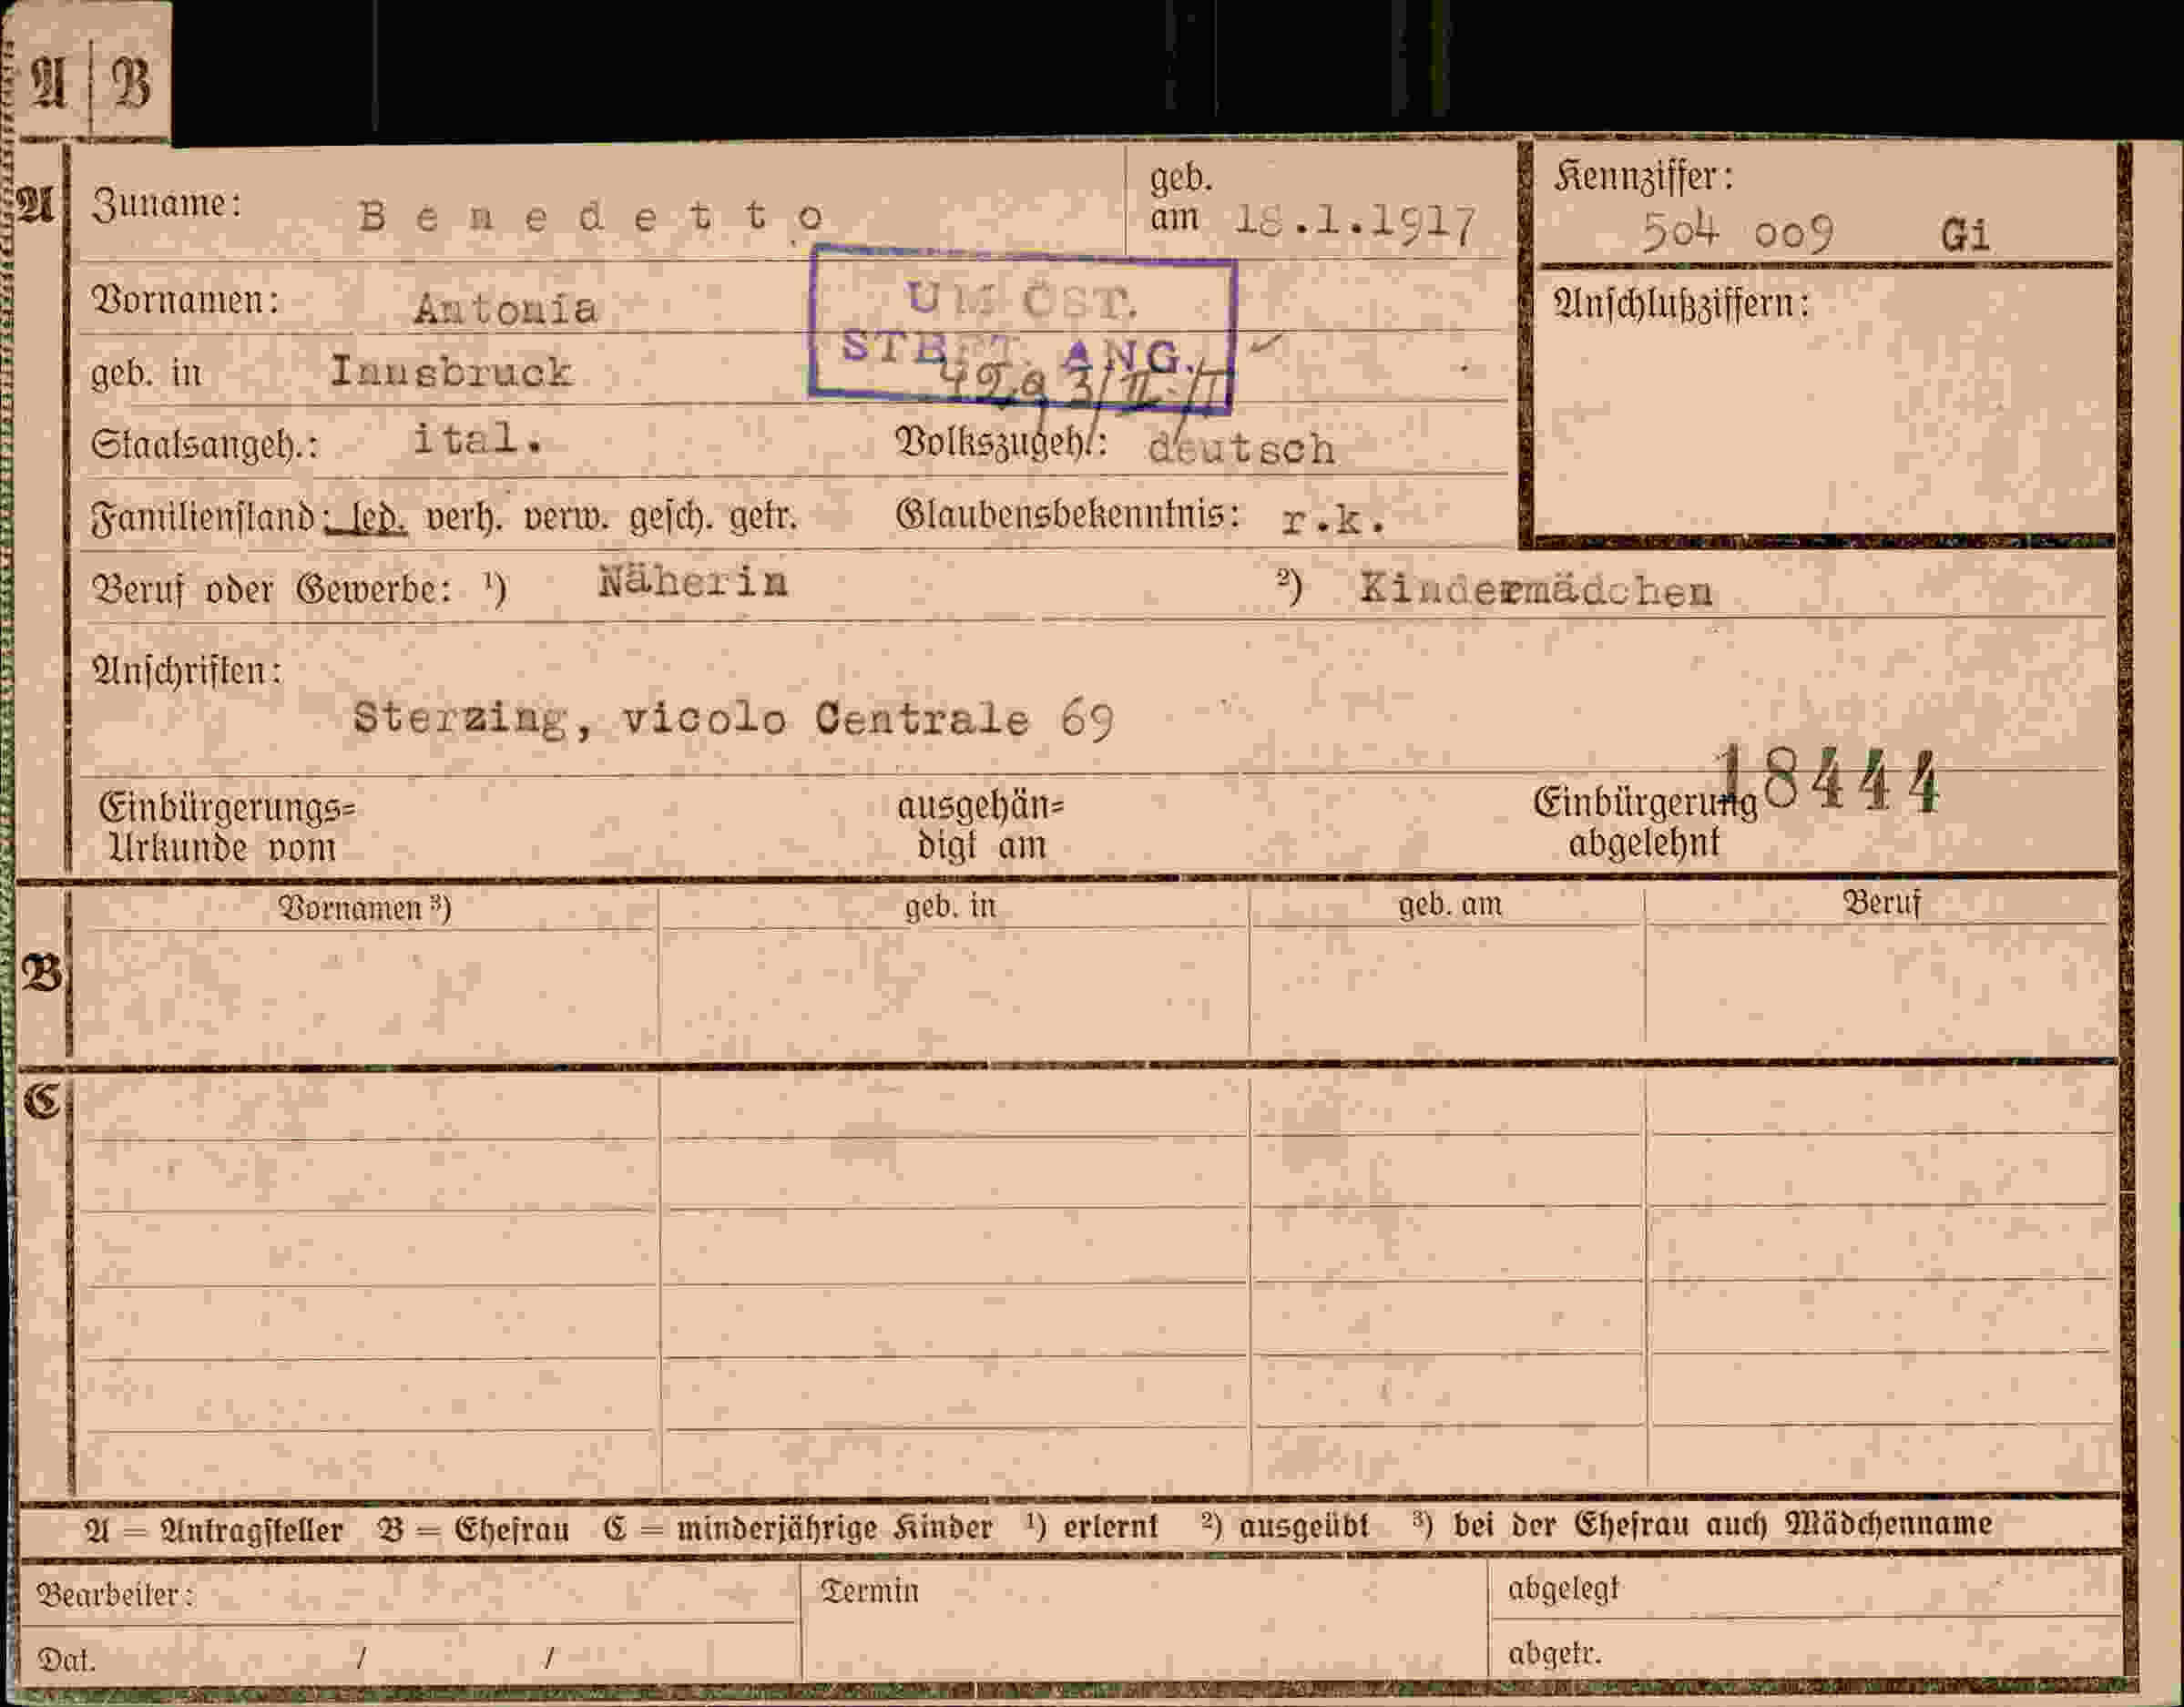 A B
A Zuname: Benedetto geb. am 18.1.1917 Kennziffer: 504 009 Gi
UM ÖST.
Vornamen: Antonia Anschlußziffern:
STBFT. ANG.
geb. in Innsbruck
Staatsangeh.: ital. Volkszugeh.: deutsch
Familienstand: led. verh. verw. gesch. getr. Glaubensbekenntnis: r.k.
Beruf oder Gewerbe: ¹) Näherin ²) Kindermädchen
Anschriften:
Sterzing, vicolo Centrale 69
18444
Einbürgerungs= ausgehän= Einbürgerung
Urkunde vom digt am abgelehnt
Vornamen ³) geb. in geb. am Beruf
B
C
A = Antragsteller B = Ehefrau C = minderjährige Kinder ¹) erlernt ²) ausgeübt ³) bei der Ehefrau auch Mädchenname
Bearbeiter: Termin abgelegt
Dat. / / abgetr.